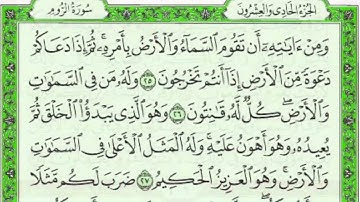 الجزء الحادي والعشرون
سورة الروم
وَمِنْ ءَايَٰتِهِۦٓ أَن تَقُومَ ٱلسَّمَآءُ وَٱلْأَرْضُ بِأَمْرِهِۦ ۚ ثُمَّ إِذَا دَعَاكُمْ
دَعْوَةً مِّنَ ٱلْأَرْضِ إِذَآ أَنتُمْ تَخْرُجُونَ ٢٥ وَلَهُۥ مَن فِى ٱلسَّمَٰوَٰتِ
وَٱلْأَرْضِ ۖ كُلٌّ لَّهُۥ قَٰنِتُونَ ٢٦ وَهُوَ ٱلَّذِى يَبْدَؤُا۟ ٱلْخَلْقَ ثُمَّ
يُعِيدُهُۥ وَهُوَ أَهْوَنُ عَلَيْهِ ۚ وَلَهُ ٱلْمَثَلُ ٱلْأَعْلَىٰ فِى ٱلسَّمَٰوَٰتِ
وَٱلْأَرْضِ ۚ وَهُوَ ٱلْعَزِيزُ ٱلْحَكِيمُ ٢٧ ضَرَبَ لَكُم مَّثَلًا